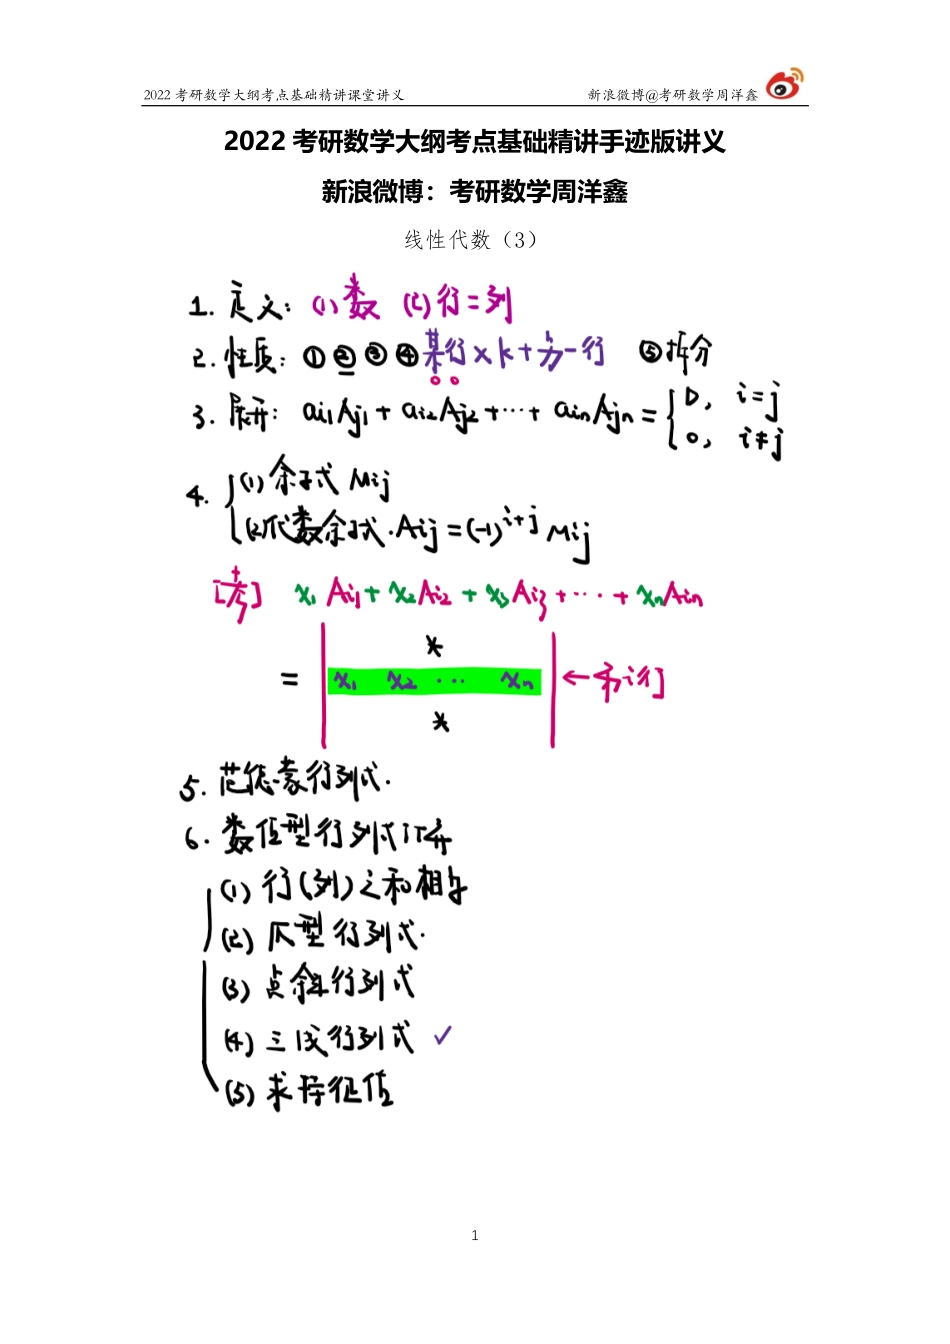 2022 考研数学大纲考点基础精讲课堂讲义 新浪微博@考研数学周洋鑫
2022 考研数学大纲考点基础精讲手迹版讲义
新浪微博：考研数学周洋鑫
线性代数（3）
1. 定义: (1) 数 (2) 行=列
2. 性质: ① ② ③ ④ 某行×k+另一行 ⑤拆分
3. 展开: ai1Aj1 + ai2Aj2 + ··· + ainAjn = { D, i=j
0, i≠j
4. { (1) 余子式 Mij
(2) 代数余子式. Aij = (-1)^{i+j} Mij
[考] x1 Ai1 + x2 Ai2 + x3 Ai3 + ··· + xn Ain
*
= | x1 x2 ··· xn | ← 第i行
*
5. 范德蒙行列式.
6. 数值型行列式计算
(1) 行(列)之和相等
(2) 爪型行列式.
(3) 点斜行列式
(4) 三线行列式 ✓
(5) 求特征值
1